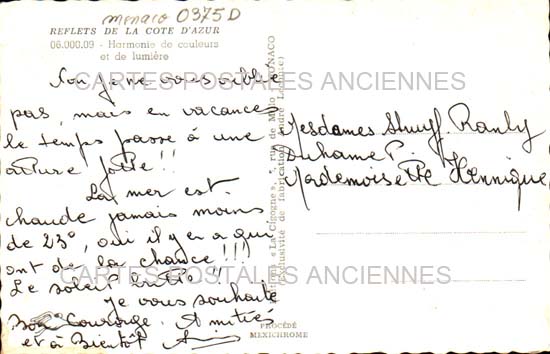 monaco 0375D
REFLETS DE LA COTE D'AZUR
06.000.09 - Harmonie de couleurs
et de lumière
Non je ne vous oublie
pas, mais en vacances
le temps passe à une
allure folle!!
La mer est
chaude jamais moins
de 23°, oui il y en a qui
ont de la chance!!!
Le soleil brille!!
je vous souhaite
Bon Courage. Amitiés
et à Bientôt
Mesdames Ranly
Duhame P.
Mademoiselle Hennique
Editions « La Cigogne », rue de Millo MONACO
Exclusivité de fabrication
PROCÉDÉ
MEXICHROME
CARTES POSTALES ANCIENNES
CARTES POSTALES ANCIENNES